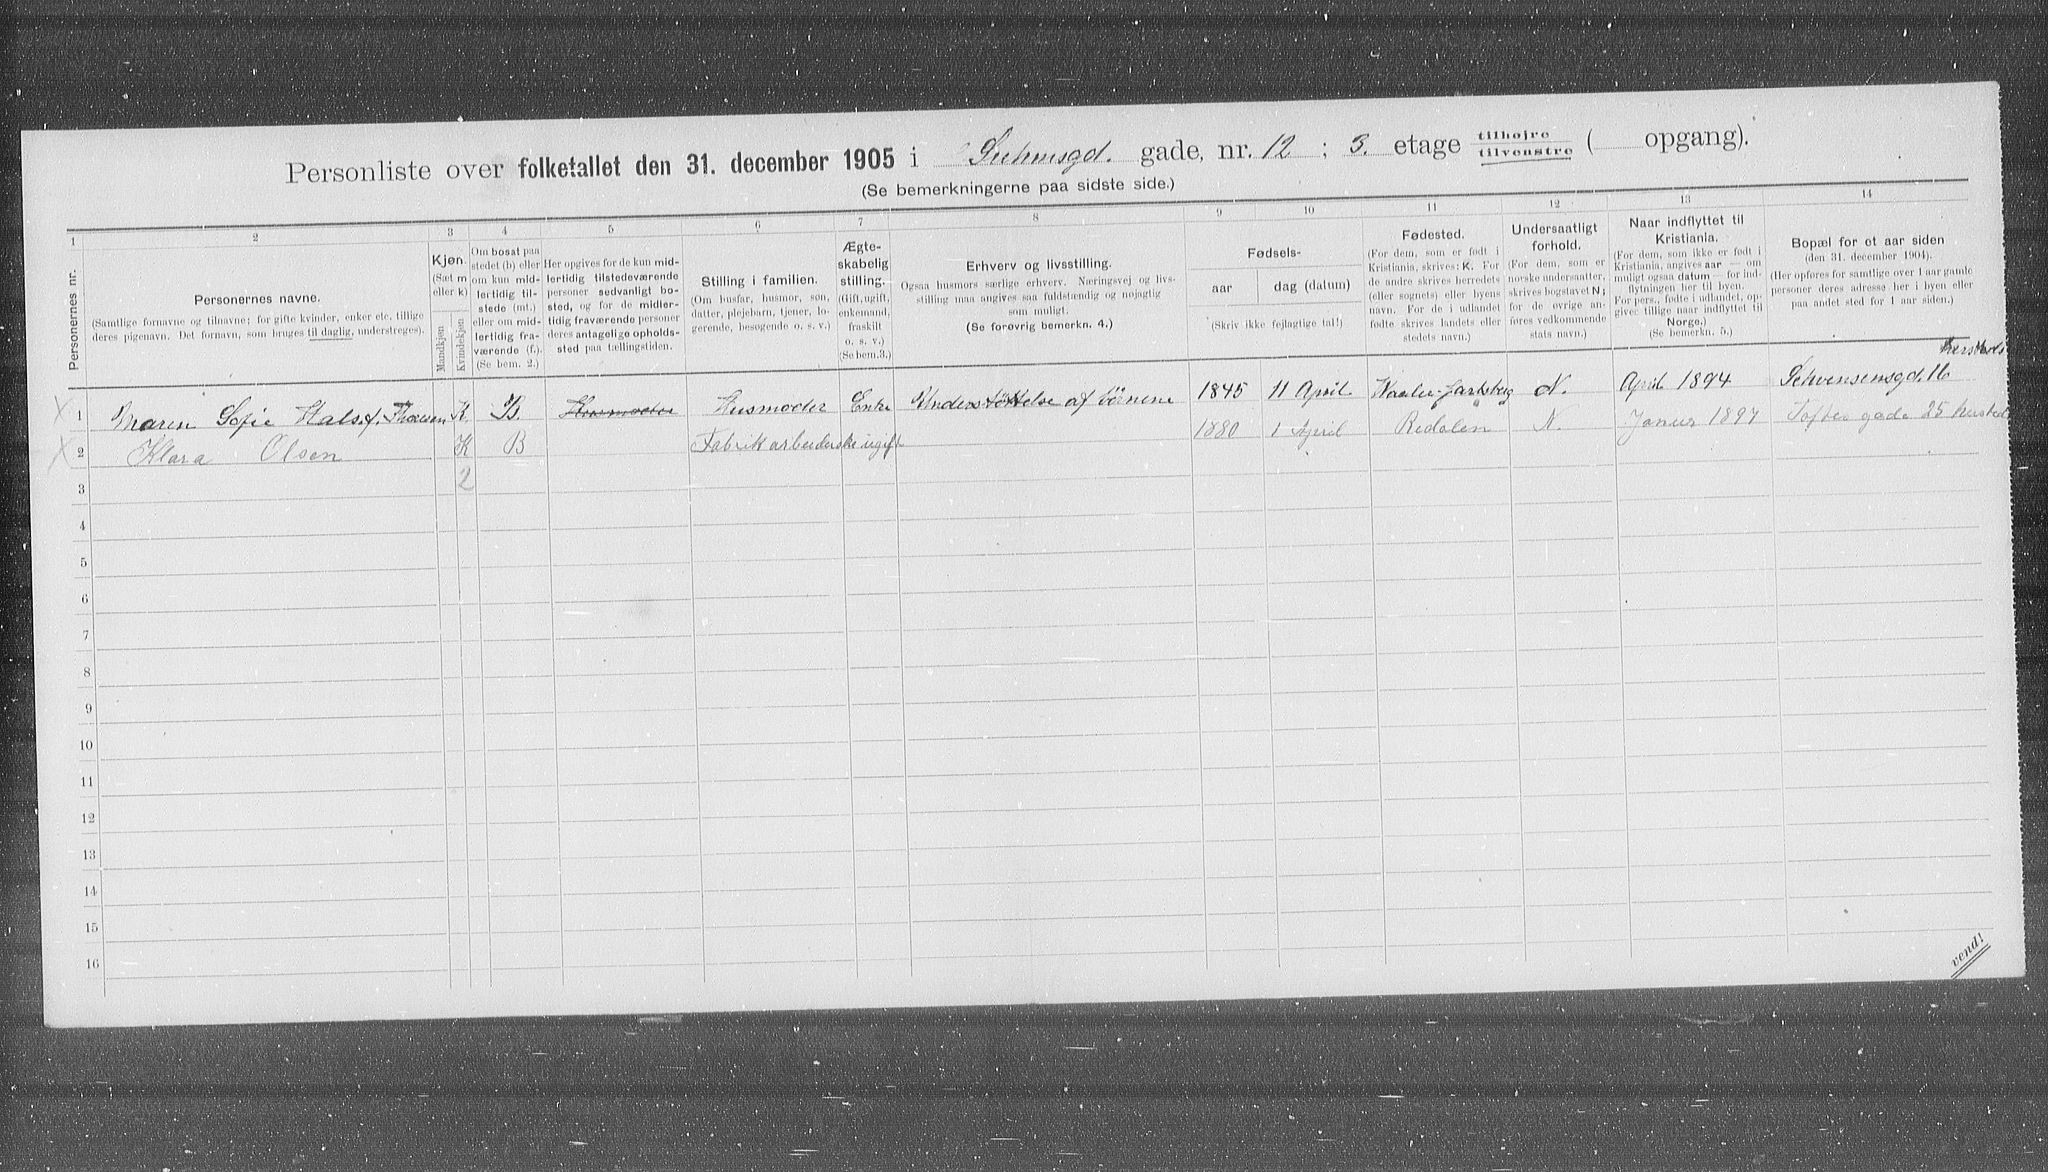 Personliste over folketallet den 31. december 1905 i Suhmsgd. gade, nr. 12 ; 3. etage tilhøjre tilvenstre ( opgang).
(Se bemerkningerne paa sidste side.)
1 2 3 4 5 6 7 8 9 10 11 12 13 14
Personernes nr.
Personernes navne.
(Samtlige fornavne og tilnavne; for gifte kvinder, enker etc. tillige
deres pigenavn. Det fornavn, som bruges til daglig, understreges).
Kjøn.
(Sæt m
eller k)
Mandkjøn
Kvindekjøn
Om bosat paa
stedet (b) eller
om kun mid-
lertidig til-
stede (mt.)
eller om mid-
lertidig fra-
værende (f.).
(Se bem. 2.)
Her opgives for de kun mid-
lertidig tilstedeværende
personer sedvanligt bo-
sted, og for de midler-
tidig fraværende personer
deres antagelige opholds-
sted paa tællingstiden.
Stilling i familien.
(Om husfar, husmor, søn,
datter, plejebarn, tjener, lo-
gerende, besøgende o. s. v.)
Ægte-
skabelig
stilling.
(Gift, ugift,
enkemand,
fraskilt
o. s. v.)
(Se bem. 3.)
Erhverv og livsstilling.
Ogsaa husmors særlige erhverv. Næringsvej og livs-
stilling maa angives saa fuldstændig og nøjagtig
som muligt.
(Se forøvrig bemerkn. 4.)
Fødsels-
aar
dag (datum)
(Skriv ikke fejlagtige tal!)
Fødested.
(For dem, som er født i
Kristiania, skrives: K. For
de andre skrives herredets
(eller sognets) eller byens
navn. For de i udlandet
fødte skrives landets eller
stedets navn.)
Undersaatligt
forhold.
(For dem, som er
norske undersaatter,
skrives bogstavet N;
for de øvrige an-
føres vedkommende
stats navn.)
Naar indflyttet til
Kristiania.
(For dem, som ikke er født i
Kristiania, angives aar — om
muligt ogsaa datum — for ind-
flytningen her til byen.
For pers., fødte i udlandet, op-
giver tillige naar indflyttet til
Norge.)
(Se bemerkn. 5.)
Bopæl for et aar siden
(den 31. december 1904).
(Her opføres for samtlige over 1 aar gamle
personer deres adresse her i byen eller
paa andet sted for 1 aar siden.)
1 Maren Sofie Hals f. K. B. Husmoder Husmoder Enke Understöttelse af börnene 1845 11 April N. April 1894
2 Klara Olsen K B Fabrikarbeiderske ugift 1880 1 April Redalen N. Januar 1897 Toftes gade 25
3 2
4
5
6
7
8
9
10
11
12
13
14
15
16
vend!